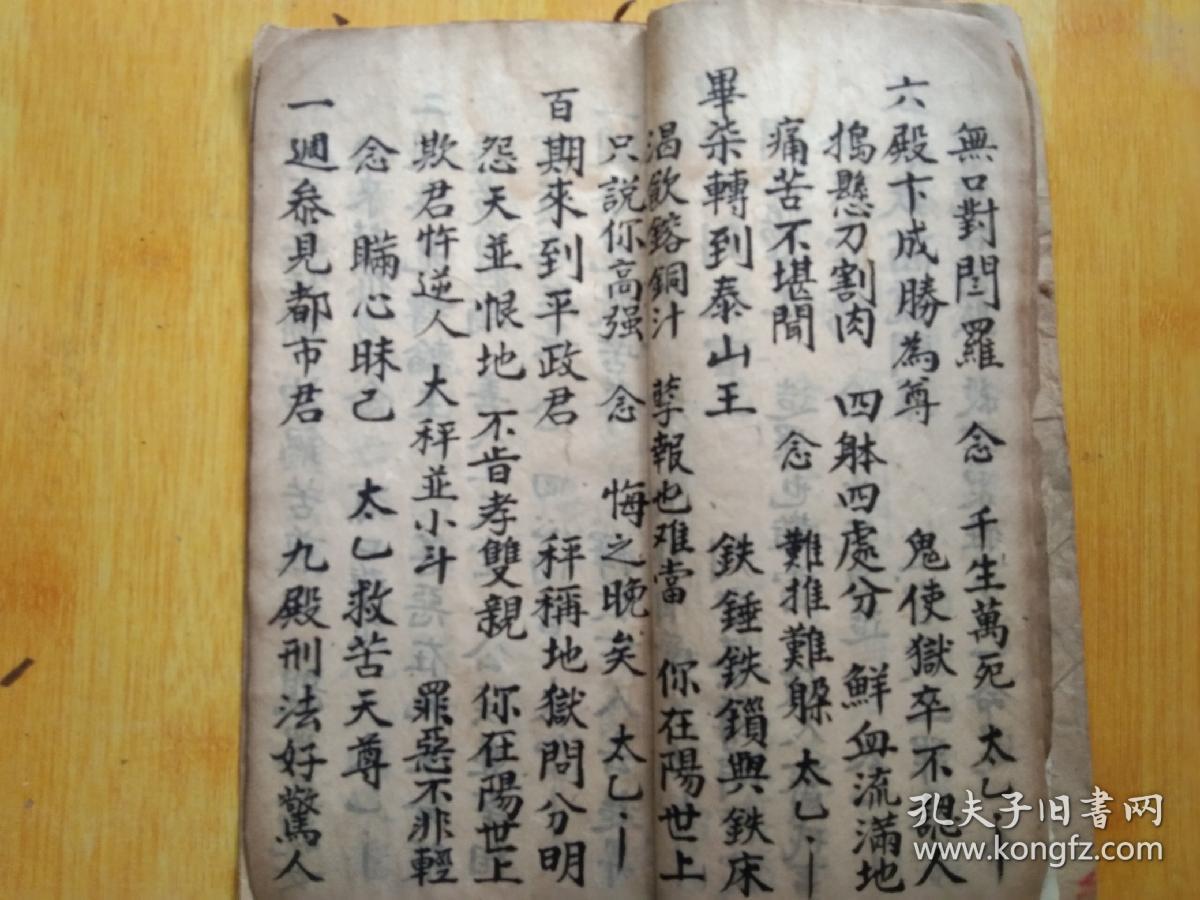 無口對閆羅 念 千生萬死 太乙
六殿卞成勝為尊 鬼使獄卒不認人
搗懸刀割肉 四躰四處分 鮮血流滿地
痛苦不堪聞 念 難推難躲 太乙
畢柒轉到泰山王 鉄錘鉄鎖與鉄床
渴飲鎔銅汁 孽報也难當 你在陽世上
只説你高强 念 悔之晚矣 太乙
百期來到平政君 秤稱地獄問分明
怨天並恨地 不肯孝雙親 你在陽世上
欺君忤逆人 大秤並小斗 罪惡不非輕
念 瞞心昧己 太乙救苦天尊
一週叅見都市君 九殿刑法好驚人
孔夫子旧书网
www.kongfz.com